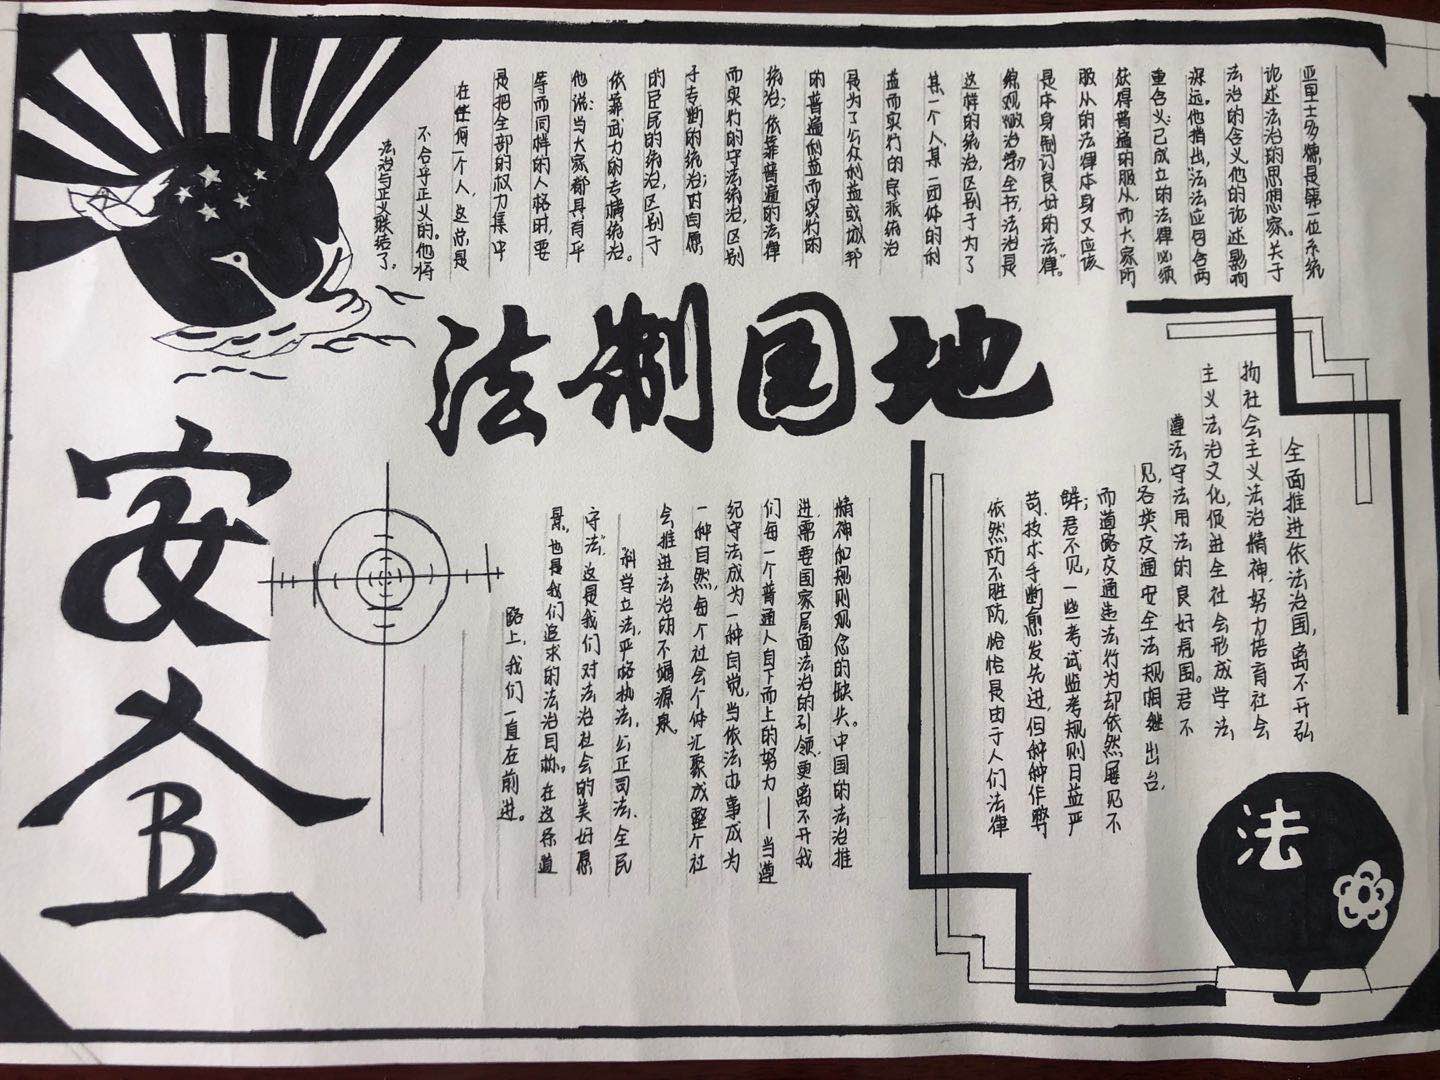 亚里士多德是第一位系统
论述法治的思想家。关于
法治的含义,他的论述影响
深远。他指出,“法法应包含两
重含义:已成立的法律必须
获得普遍的服从,而大家所
服从的法律本身又应该
是本身制订良好的法律。”
综观《政治学》全书,法治是
这样的统治,区别于为了
某一个人某一团体的利
益而实行的宗派统治
是为了公众利益或城邦
的普遍利益而实行的
统治;依靠普遍的法律
而实行的守法统治,区别
于专断的统治;对自愿
的臣民的统治,区别于
依靠武力的专横统治。
他说:当大家都具有平
等而同样的人格时,要
是把全部的权力集中
在任何一个人,这总是
不合乎正义的。他将
法治与正义联结了。
法制园地
安全
全面推进依法治国,离不开弘
扬社会主义法治精神,努力培育社会
主义法治文化,促进全社会形成学法
遵法守法用法的良好氛围。君不
见,各类交通安全法规相继出台,
而道路交通违法行为却依然屡见不
鲜;君不见,一些考试监考规则日益严
苛,技术手断愈发先进,但种种作弊
依然防不胜防,恰恰是由于人们法律
精神和规则观念的缺失。中国的法治推
进需要国家层面法治的引领,更离不开我
们每一个普通人自下而上的努力——当遵
纪守法成为一种自觉,当依法办事成为
一种自然,每个社会个体汇聚成整个社
会推进法治的不竭源泉。
“科学立法,严格执法,公正司法,全民
守法”,这是我们对法治社会的美好愿
景。也是我们追求的法治目标。在这条道
路上,我们一直在前进。
法